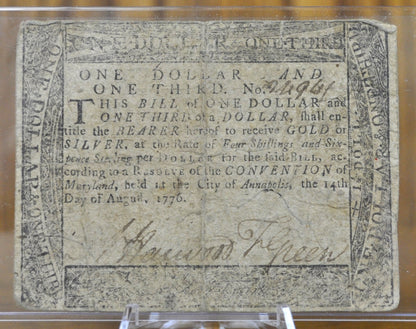 ONE DOLLAR ONE-THIRD
ONE DOLLAR AND
ONE THIRD. No.
THIS BILL of ONE DOLLAR and
ONE THIRD of a DOLLAR, shall en-
title the BEARER hereof to receive GOLD or
SILVER, at the Rate of Four Shillings and Six-
pence Sterling per DOLLAR for the said BILL, ac-
cording to a RESOLVE of the CONVENTION of
Maryland, held at the City of Annapolis, the 14th
Day of August, 1776.
Harwood T Green